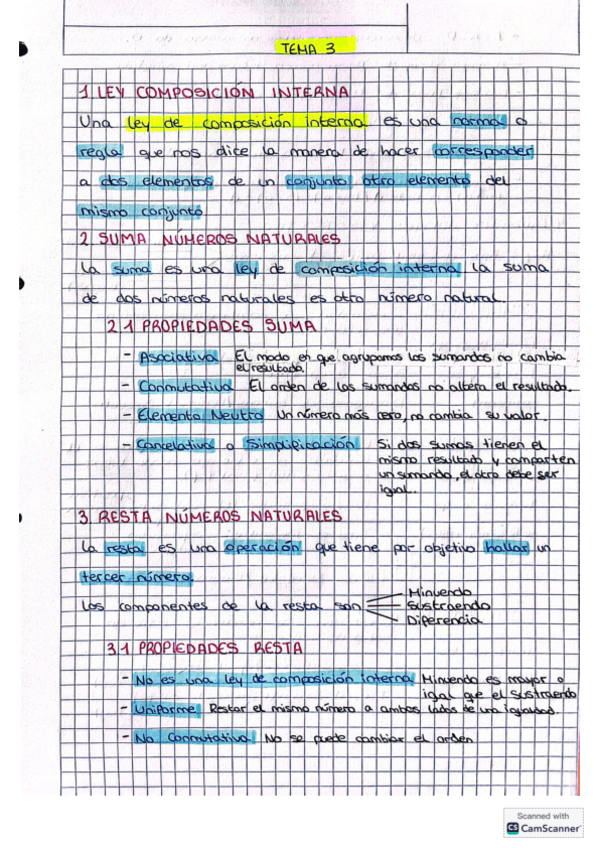 TEMA 3
1 LEY COMPOSICIÓN INTERNA
Una ley de composición interna es una norma o
regla que nos dice la manera de hacer corresponder
a dos elementos de un conjunto otro elemento del
mismo conjunto
2 SUMA NÚMEROS NATURALES
La suma es una ley de composición interna la suma
de dos números naturales es otro número natural.
2.1 PROPIEDADES SUMA
- Asociativa El modo en que agrupamos los sumandos no cambia
el resultado.
- Conmutativa El orden de los sumandos no altera el resultado.
- Elemento Neutro Un número más cero, no cambia su valor.
- Cancelativa o Simplificación Si dos sumas tienen el
mismo resultado y comparten
un sumando, el otro debe ser
igual.
3. RESTA NÚMEROS NATURALES
La resta es una operación que tiene por objetivo hallar un
tercer número.
Los componentes de la resta son Minuendo
Sustraendo
Diferencia
3.1 PROPIEDADES RESTA
- No es una ley de composición interna Minuendo es mayor o
igal que el sustraendo
- Uniforme Restar el mismo número a ambos lados de una igualdad.
- No Conmutativa No se puede cambiar el orden
Scanned with
CS CamScanner